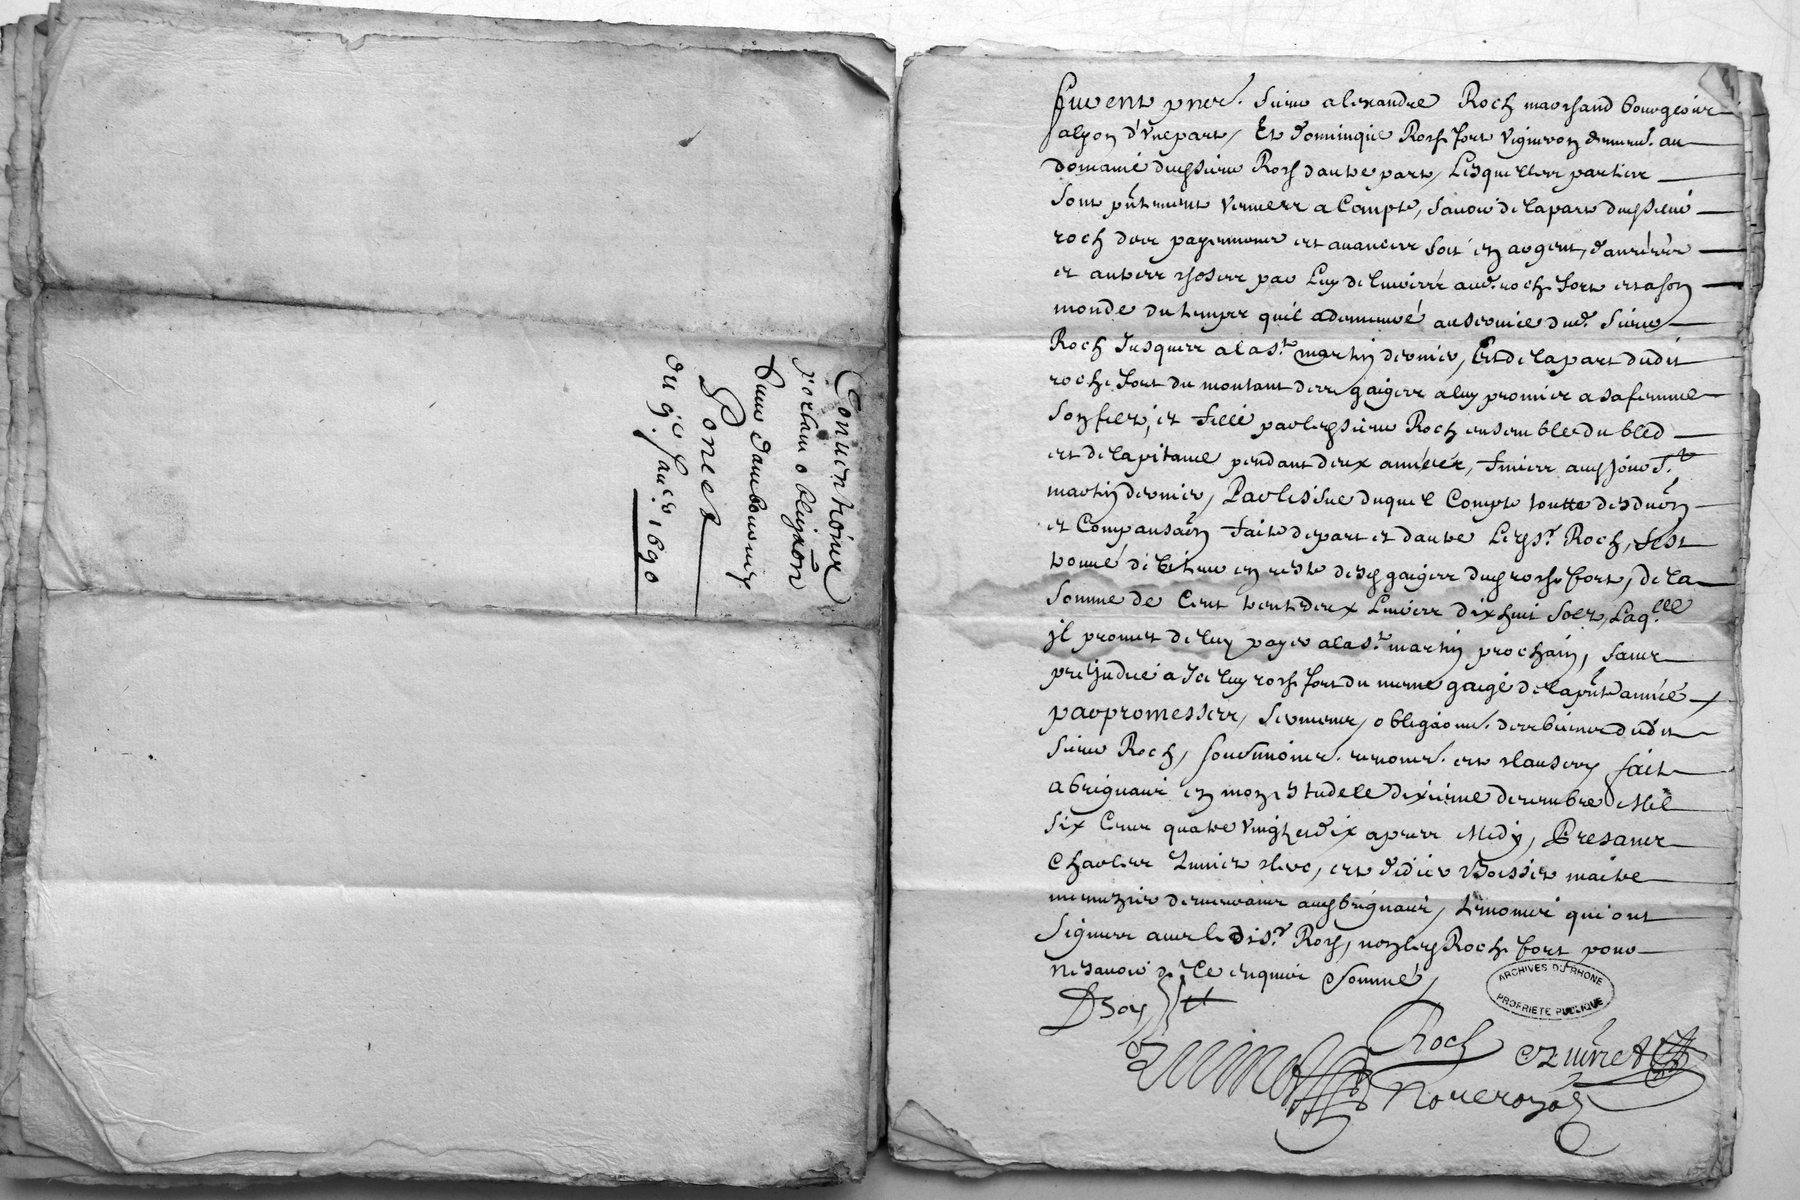 Conventions
portant obligaõn
Sieur
Ponet
Du 9e Janer 1690
Furent pnts. Sieur alexandre Roch marchand bourgeois
a lyon d'vne part, Et Dominique Rochefort vigneron demeurt. au
domaine dudsieur Roch dautre part, Lesquelles parties
Sont pñtement venues a Compte, sauoir de la part dudsieur
roch des payemens et auances soit en argent, danrées
et autres choses par Luy deliurées aud. rochefort et a son
monde du temps quil a demeuré au seruice dud. Sieur
Roch Jusques a la St. martin dernier, Et de la part dudit
rochefort du montant des gaiges a luy promis a sa femme
son fils, et fille par ledsieur Roch ensemble du bled
et de la pitance pendant deux années, finies aud jour St.
martin dernier, Par lissue duquel Compte toutte desduõn
et Compansaõn faite de part et dautre Ledsr. Roch, sest
trouué débiteur en reste desd gaiges dud rochefort, de la
somme de Cent trente deux Liures dix huit sols, Laqlle
jl promet de luy payer a la St. martin prochain, sans
préjudice a Iceluy rochefort du mesme gaige de la pñte année
par promesses, sermens, obligaons. des biens dudit
Sieur Roch, soubmions. renons. et clauses, fait
a brignais en mon estude le dixieme decembre Mil
six Cens quatre vingts dix apres Midy, Presans
Charles Zunier clerc, et didier Boissit maitre
menuzier demeurans aud brignais, temoins qui ont
Signes auec le dit sr. Roch, non led Rochefort pour
ne sauoir de Ce enquis et sommé,
ARCHIVES DU RHONE
PROPRIETE PUBLIQUE
Roch